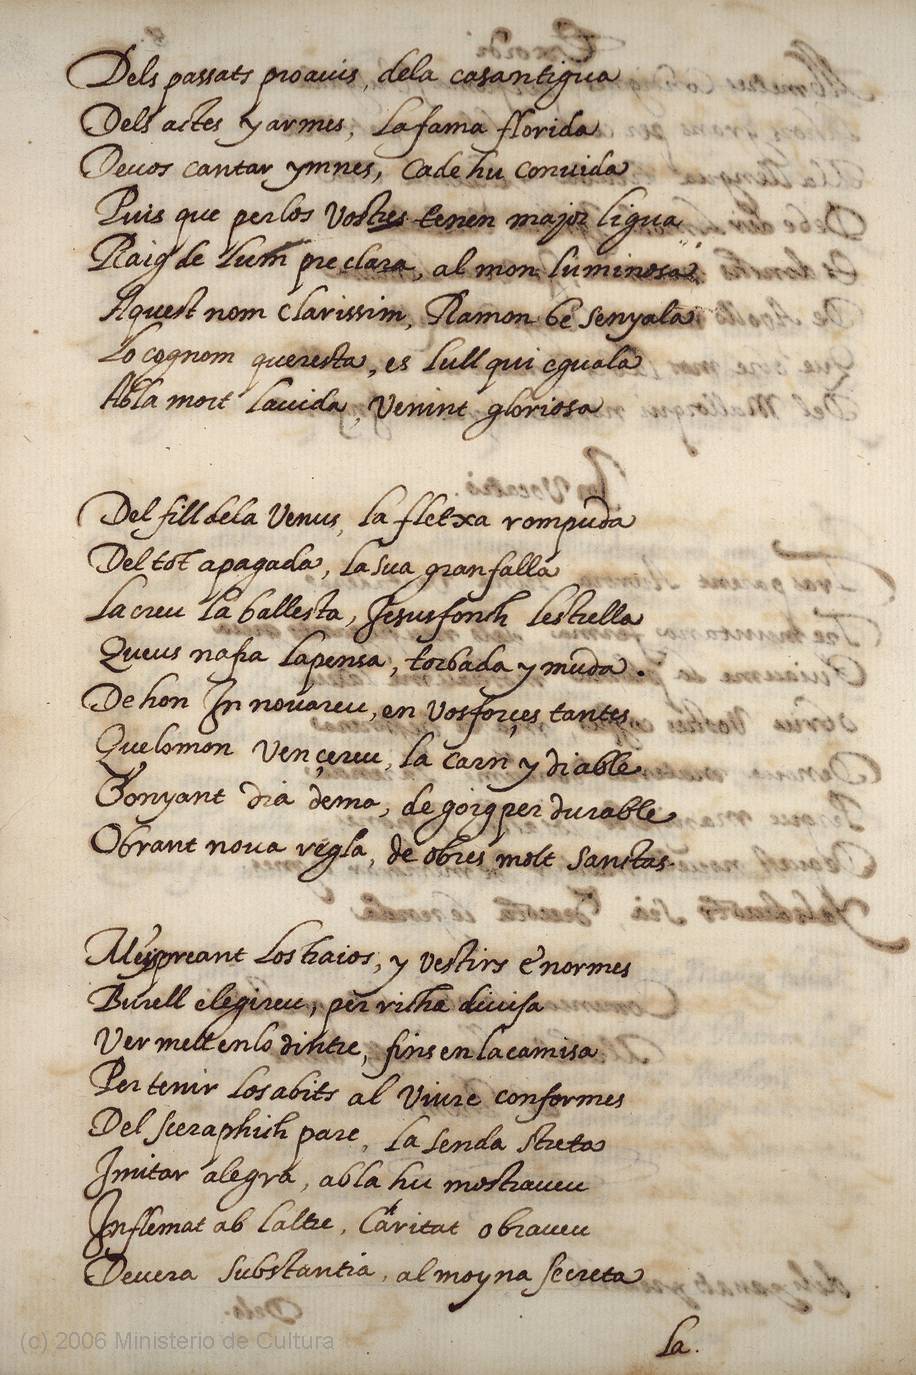 Dels passats proauis, dela casantigua
Dels actes y armes, la fama florida
Deuos cantar ymnes, cade hu conuida
Puis que perlos vostres tenen major ligua
Raig de lum pre clara, al mon luminosa
Aquest nom clarissim, Ramon be senyala
Lo cognom queresta, es lull qui eguala
Abla mort lauida, venint gloriosa
Del fill dela Venus, la fletxa rompuda
Del tot apagada, la sua gran falla
La creu la ballesta, Jesus fonch lestrella
Queus nafra lapensa, torbada y muda.
De hon Jn nouareu, en vos forçes tantes
Que lo mon vençereu, la carn y diable
Gonyant dia dema, de goig per durable
Obrant noua regla, de obres molt sanctas.
Meyspreant los traios, y vestirs enormes
Burell elegireu, per richa diuisa
Vermell en lo dintre, fins en la camisa
Per tenir los abits al viure conformes
Del seeraphich pare, la senda streta
Jmitar alegra, abla hu mostraueu
Jnflemat ab laltre, Caritat obraueu
Deuera substantia, almoyna secreta
la.
(c) 2006 Ministerio de Cultura